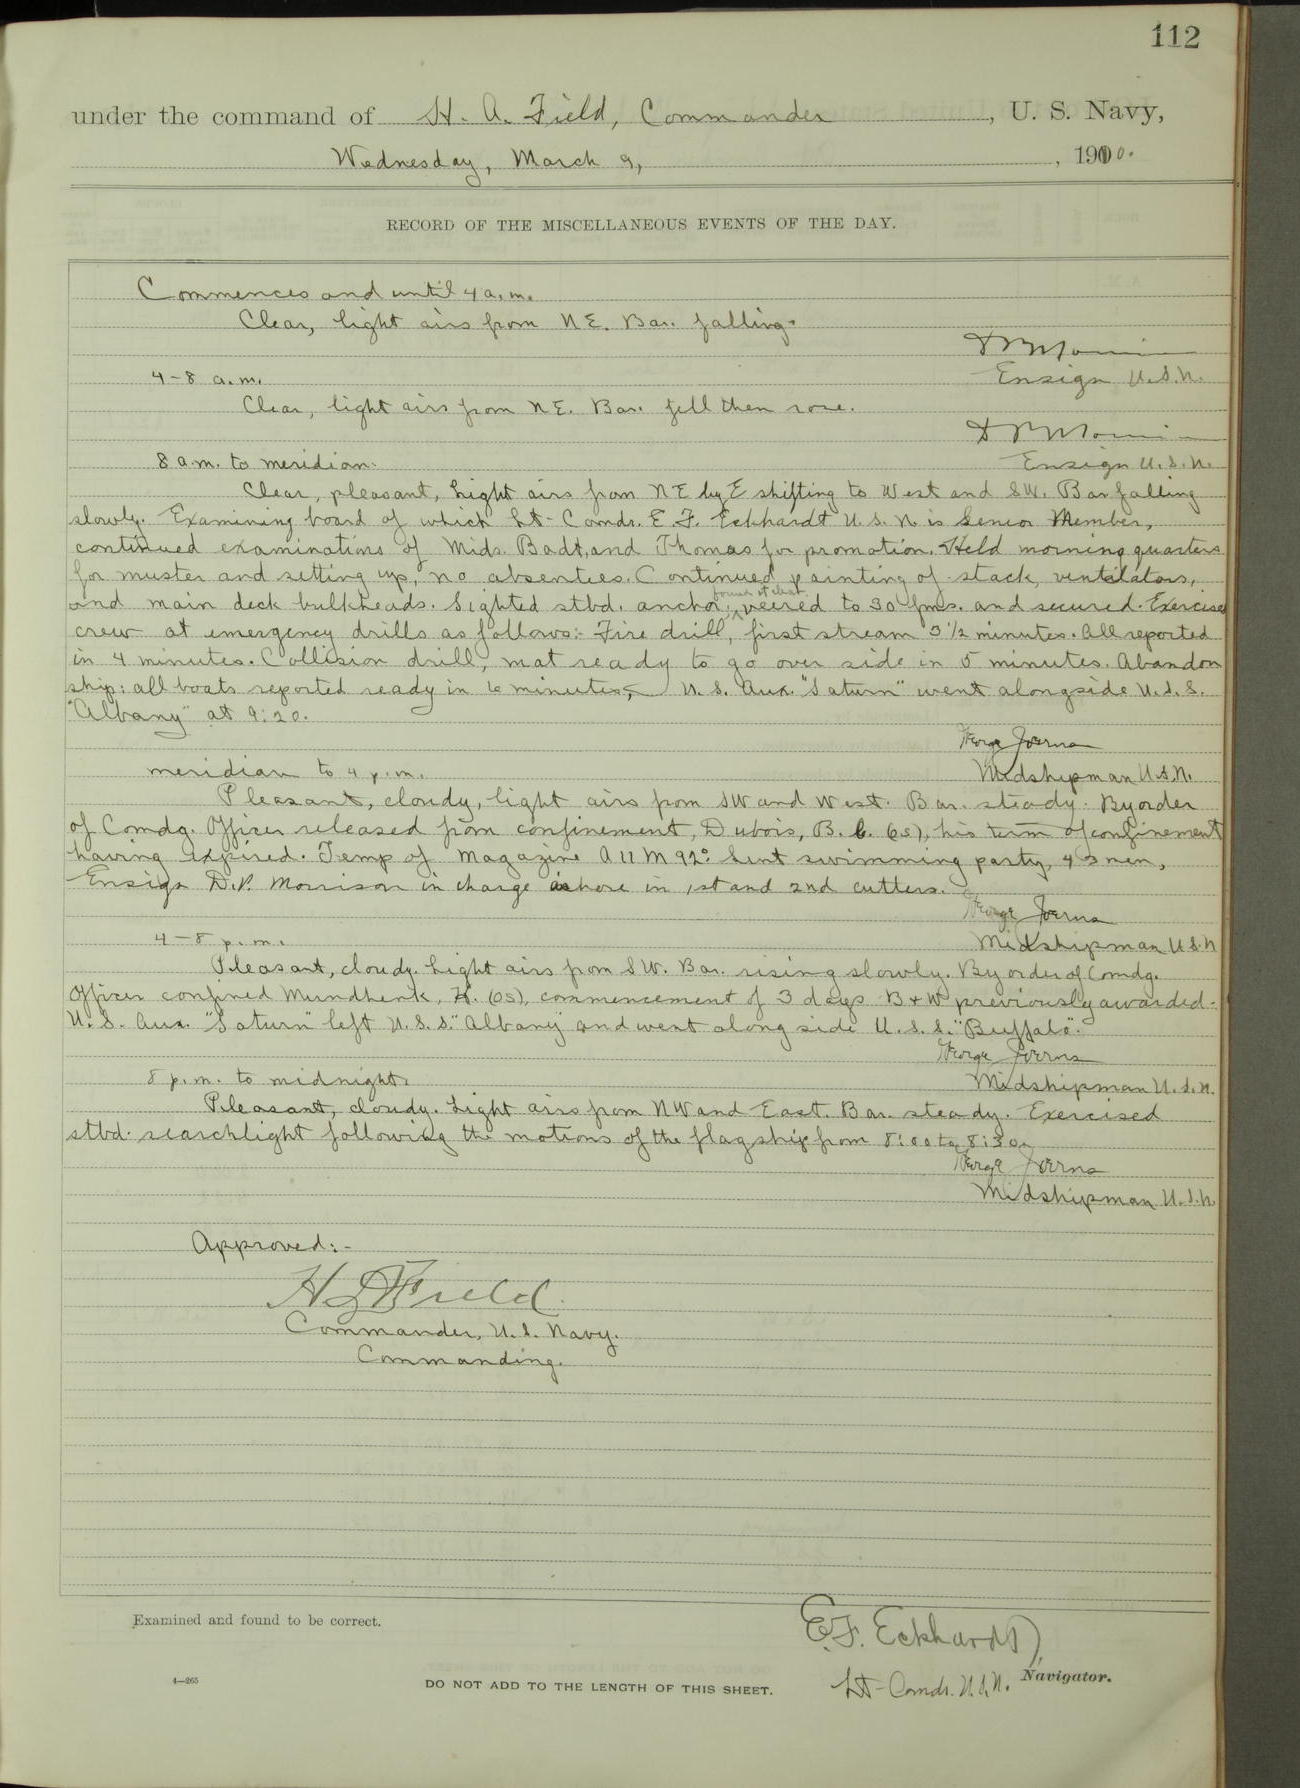 112
under the command of H. A. Field, Commander, U. S. Navy,
Wednesday, March 9, 1910.
RECORD OF THE MISCELLANEOUS EVENTS OF THE DAY.
Commences and until 4 a.m.
Clear, light airs from NE. Bar. falling.
4-8 a.m.
Ensign U.S.N.
Clear, light airs from NE. Bar. fell then rose.
8 a.m. to meridian.
Ensign U.S.N.
Clear, pleasant, Light airs from NE by E shifting to West and SW. Bar falling
slowly. Examining board of which Lt-Comdr. E. F. Eckhardt U.S.N. is Senior Member,
continued examinations of Mids. Badt, and Thomas for promotion. Held morning quarters
for muster and setting up, no absentees. Continued painting of stack, ventilators,
and main deck bulkheads. Sighted stbd. anchor, found it clear, veered to 30 fms. and secured. Exercised
crew at emergency drills as follows:- Fire drill, first stream 3 1/2 minutes. All reported
in 4 minutes. Collision drill, mat ready to go over side in 5 minutes. Abandon
ship: all boats reported ready in 6 minutes. U. S. Aux. "Saturn" went alongside U.S.S.
"Albany" at 9:20.
George Joerns
meridian to 4 p.m.
Midshipman U.S.N.
Pleasant, cloudy, light airs from SW and West. Bar. steady. By order
of Comdg. Officer released from confinement, Dubois, B. C. (OS), his term of confinement
having expired. Temp of Magazine A 11 M 92° Sent swimming party, 43 men,
Ensign D.P. Morrison in charge ashore in 1st and 2nd cutters.
George Joerns
4-8 p.m.
Midshipman U.S.N
Pleasant, cloudy. Light airs from SW. Bar. rising slowly. By order of Comdg.
Officer confined Mundhenk, H. (OS), commencement of 3 days B+W previously awarded.
U.S. Aux. "Saturn" left U.S.S. "Albany" and went alongside U.S.S. "Buffalo".
George Joerns
8 p.m. to midnight.
Midshipman U.S.N.
Pleasant, cloudy. Light airs from NW and East. Bar. steady. Exercised
stbd. searchlight following the motions of the flagship from 8:00 to 8:30.
George Joerns
Midshipman U.S.N.
Approved:-
H A Field
Commander, U.S. Navy.
Commanding.
Examined and found to be correct.
E. F. Eckhardt,
Lt-Comdr. U.S.N. Navigator.
4—265
DO NOT ADD TO THE LENGTH OF THIS SHEET.